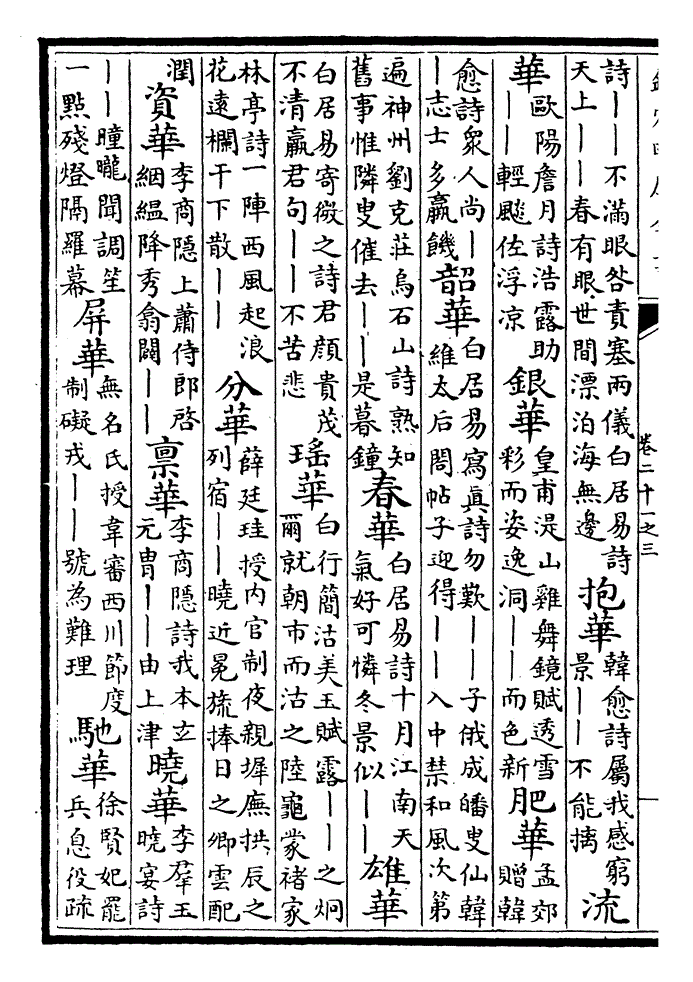 詩——不滿眼咎責塞兩儀白居易詩天上——春有眼世間漂泊海無邊 抱華 韓愈詩屬我感窮景——不能摛 流
華 歐陽詹月詩浩露助——輕飈佐浮凉 銀華 皇甫湜山雞舞鏡賦透雪彩而姿逸洞——而色新 肥華 孟郊贈韓
愈詩衆人尚——志士多羸餓 韶華 白居易寫真詩勿歎——子俄成皤叟仙韓維太后閤帖子迎得——入中禁和風次第
遍神州劉克莊烏石山詩熟知舊事惟隣叟催去——是暮鐘 春華 白居易詩十月江南天氣好可憐冬景似—— 雄華
白居易寄微之詩君顔貴茂不清羸君句——不苦悲 瑤華 白行簡沽美玉賦露——之炯爾就朝市而沽之陸龜蒙褚家
林亭詩一陣西風起浪花遠欄干下散—— 分華 薛廷珪授内官制夜親墀廡拱辰之列宿——曉近冕旒捧日之卿雲配
潤 資華 李商隱上蕭侍郎啓絪緼降秀翕闢—— 禀華 李商隱詩我本玄元胄——由上津 曉華 李羣玉曉宴詩
——曈曨聞調笙一點殘燈隔羅幕 屏華 無名氏授韋審西川節度制礙戎——號為難理 馳華 徐賢妃罷兵息役疏
卷二十一之三